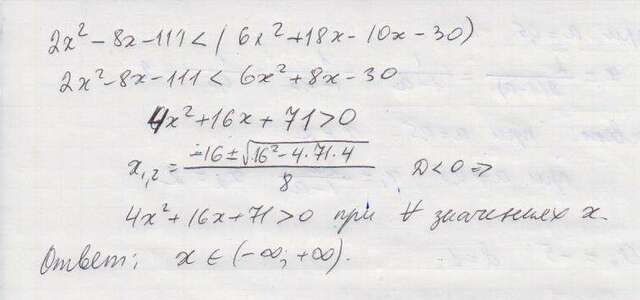 2x² - 8x - 111 < (6x² + 18x - 10x - 30)
2x² - 8x - 111 < 6x² + 8x - 30
4x² + 16x + 71 > 0
x₁,₂ = (-16 ± √(16² - 4·71·4)) / 8   D < 0 ⇒
4x² + 16x + 71 > 0 при ∀ значениях x.
Ответ: x ∈ (-∞, +∞).